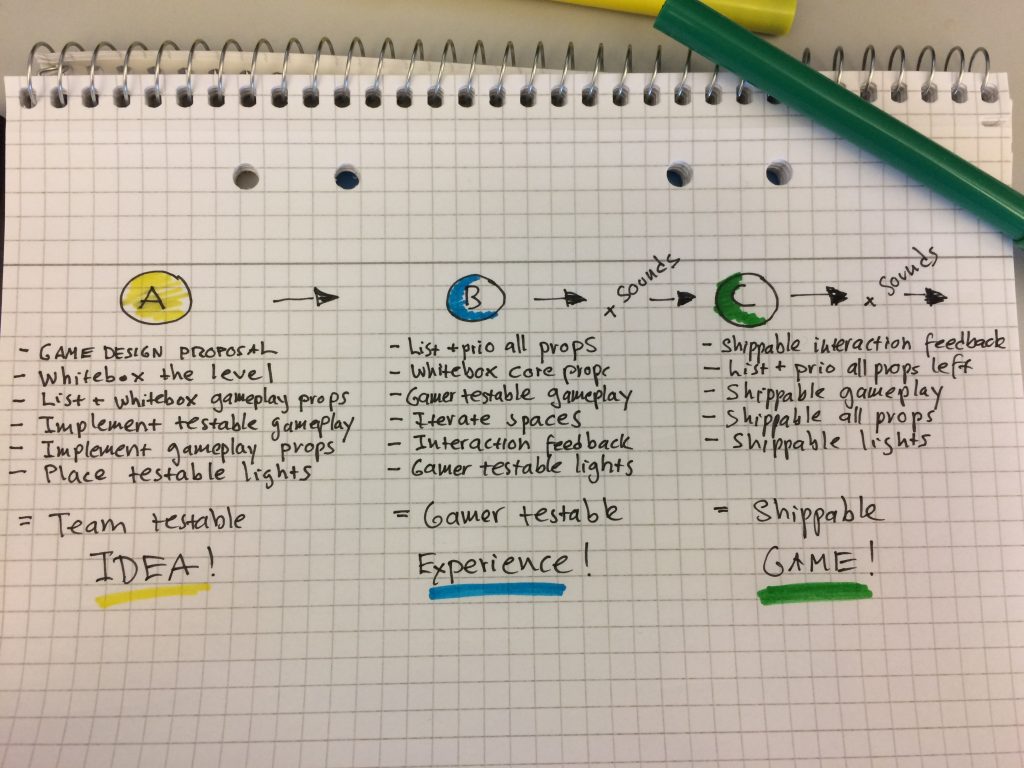 A
- GAME DESIGN PROPOSAL
- Whitebox the level
- List + whitebox gameplay props
- Implement testable gameplay
- Implement gameplay props
- Place testable lights
= Team testable
IDEA!
B
x sounds
- List + prio all props
- Whitebox core props
- Gamer testable gameplay
- Iterate spaces
- Interaction feedback
- Gamer testable lights
= Gamer testable
Experience!
C
x sounds
- Shippable interaction feedback
- List + prio all props left
- Shippable gameplay
- Shippable all props
- Shippable lights
= Shippable
GAME!